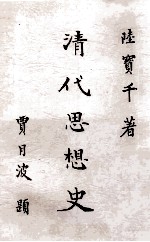 陸寶千著
清代思想史
賈月波題